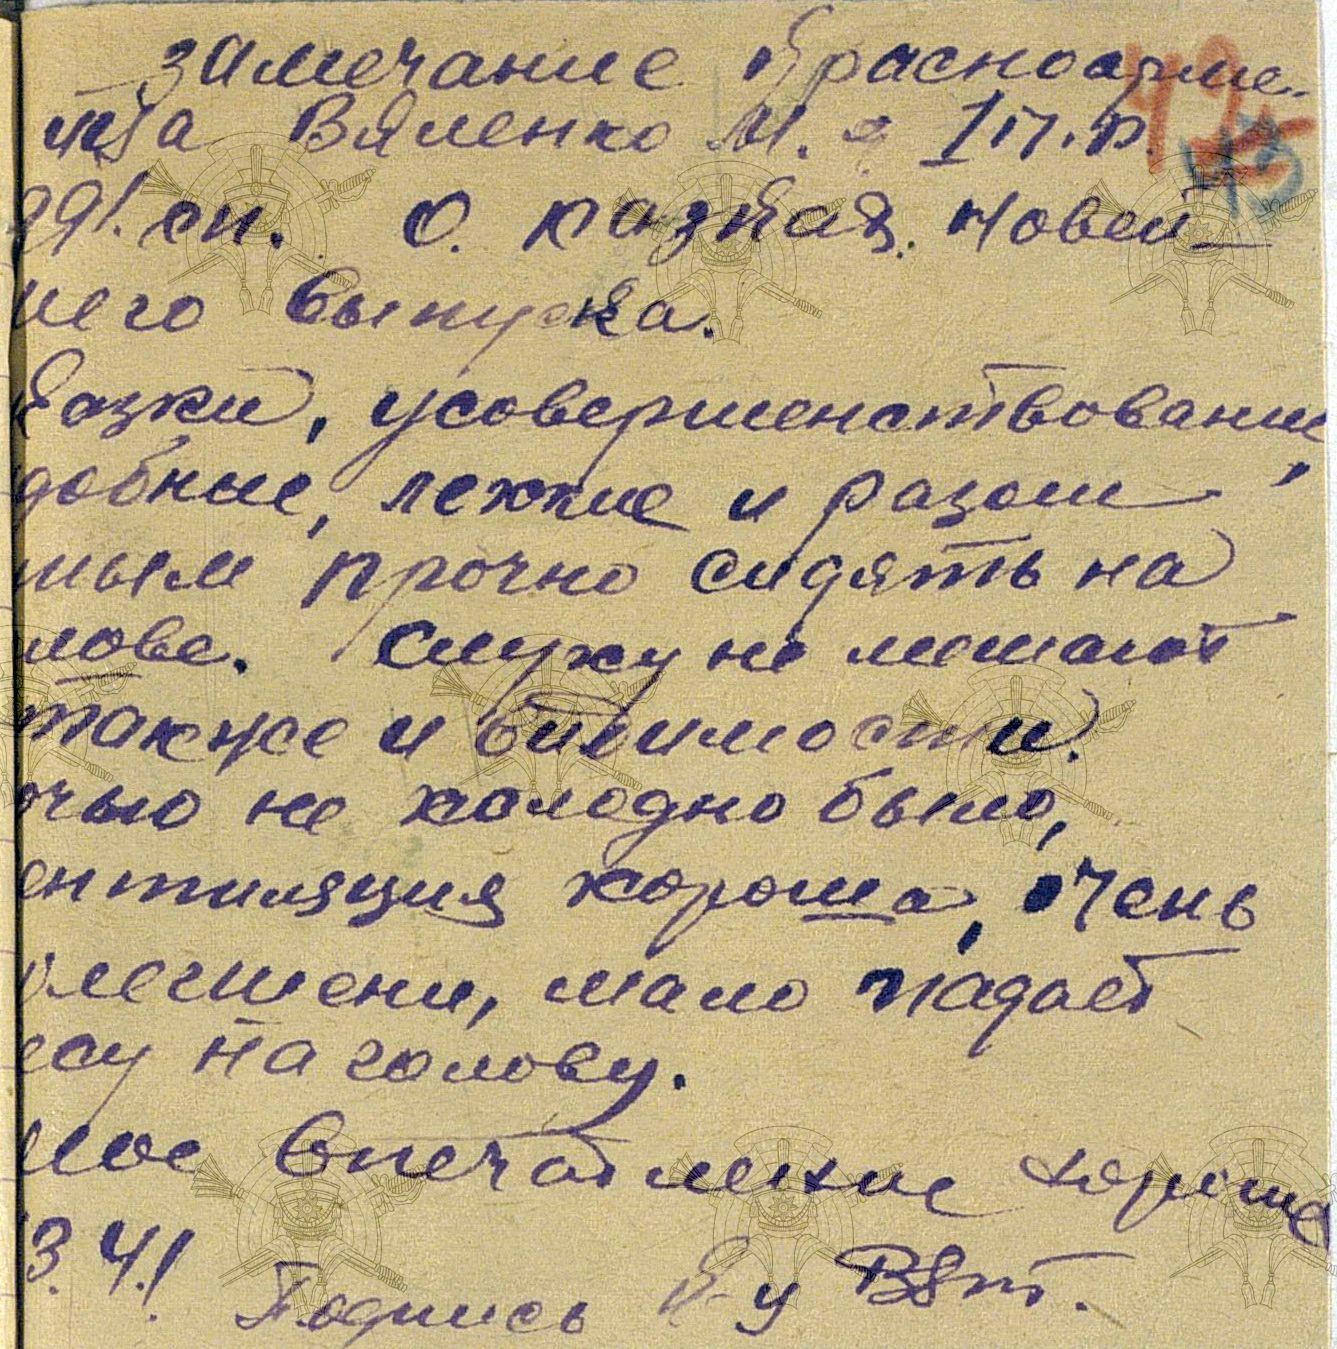 замечание Красноарме-
йца Вяленко М. 1 п.р.
сп. О касках новей
шего выпуска.
Каски, усовершенствование,
добные, легкие и разом
ным прочно сидять на
лове. Слуху не мешают
также и видимости.
очью не холодно было,
ентиляция хороша, очень
олегшени, мало падает
есу на голову.
мое впечатление хороше
3.41 Подпись К-у
42